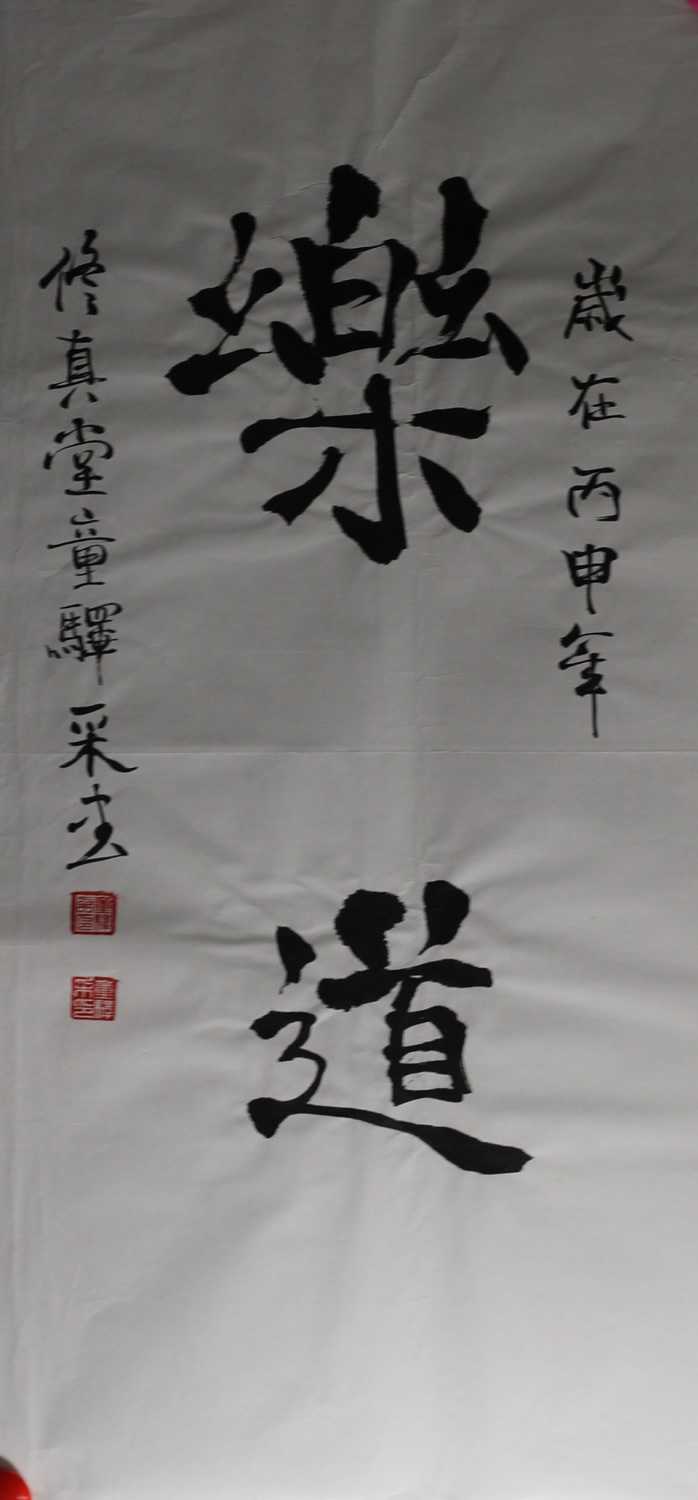 歲在丙申年
樂道
修真堂童驛采書